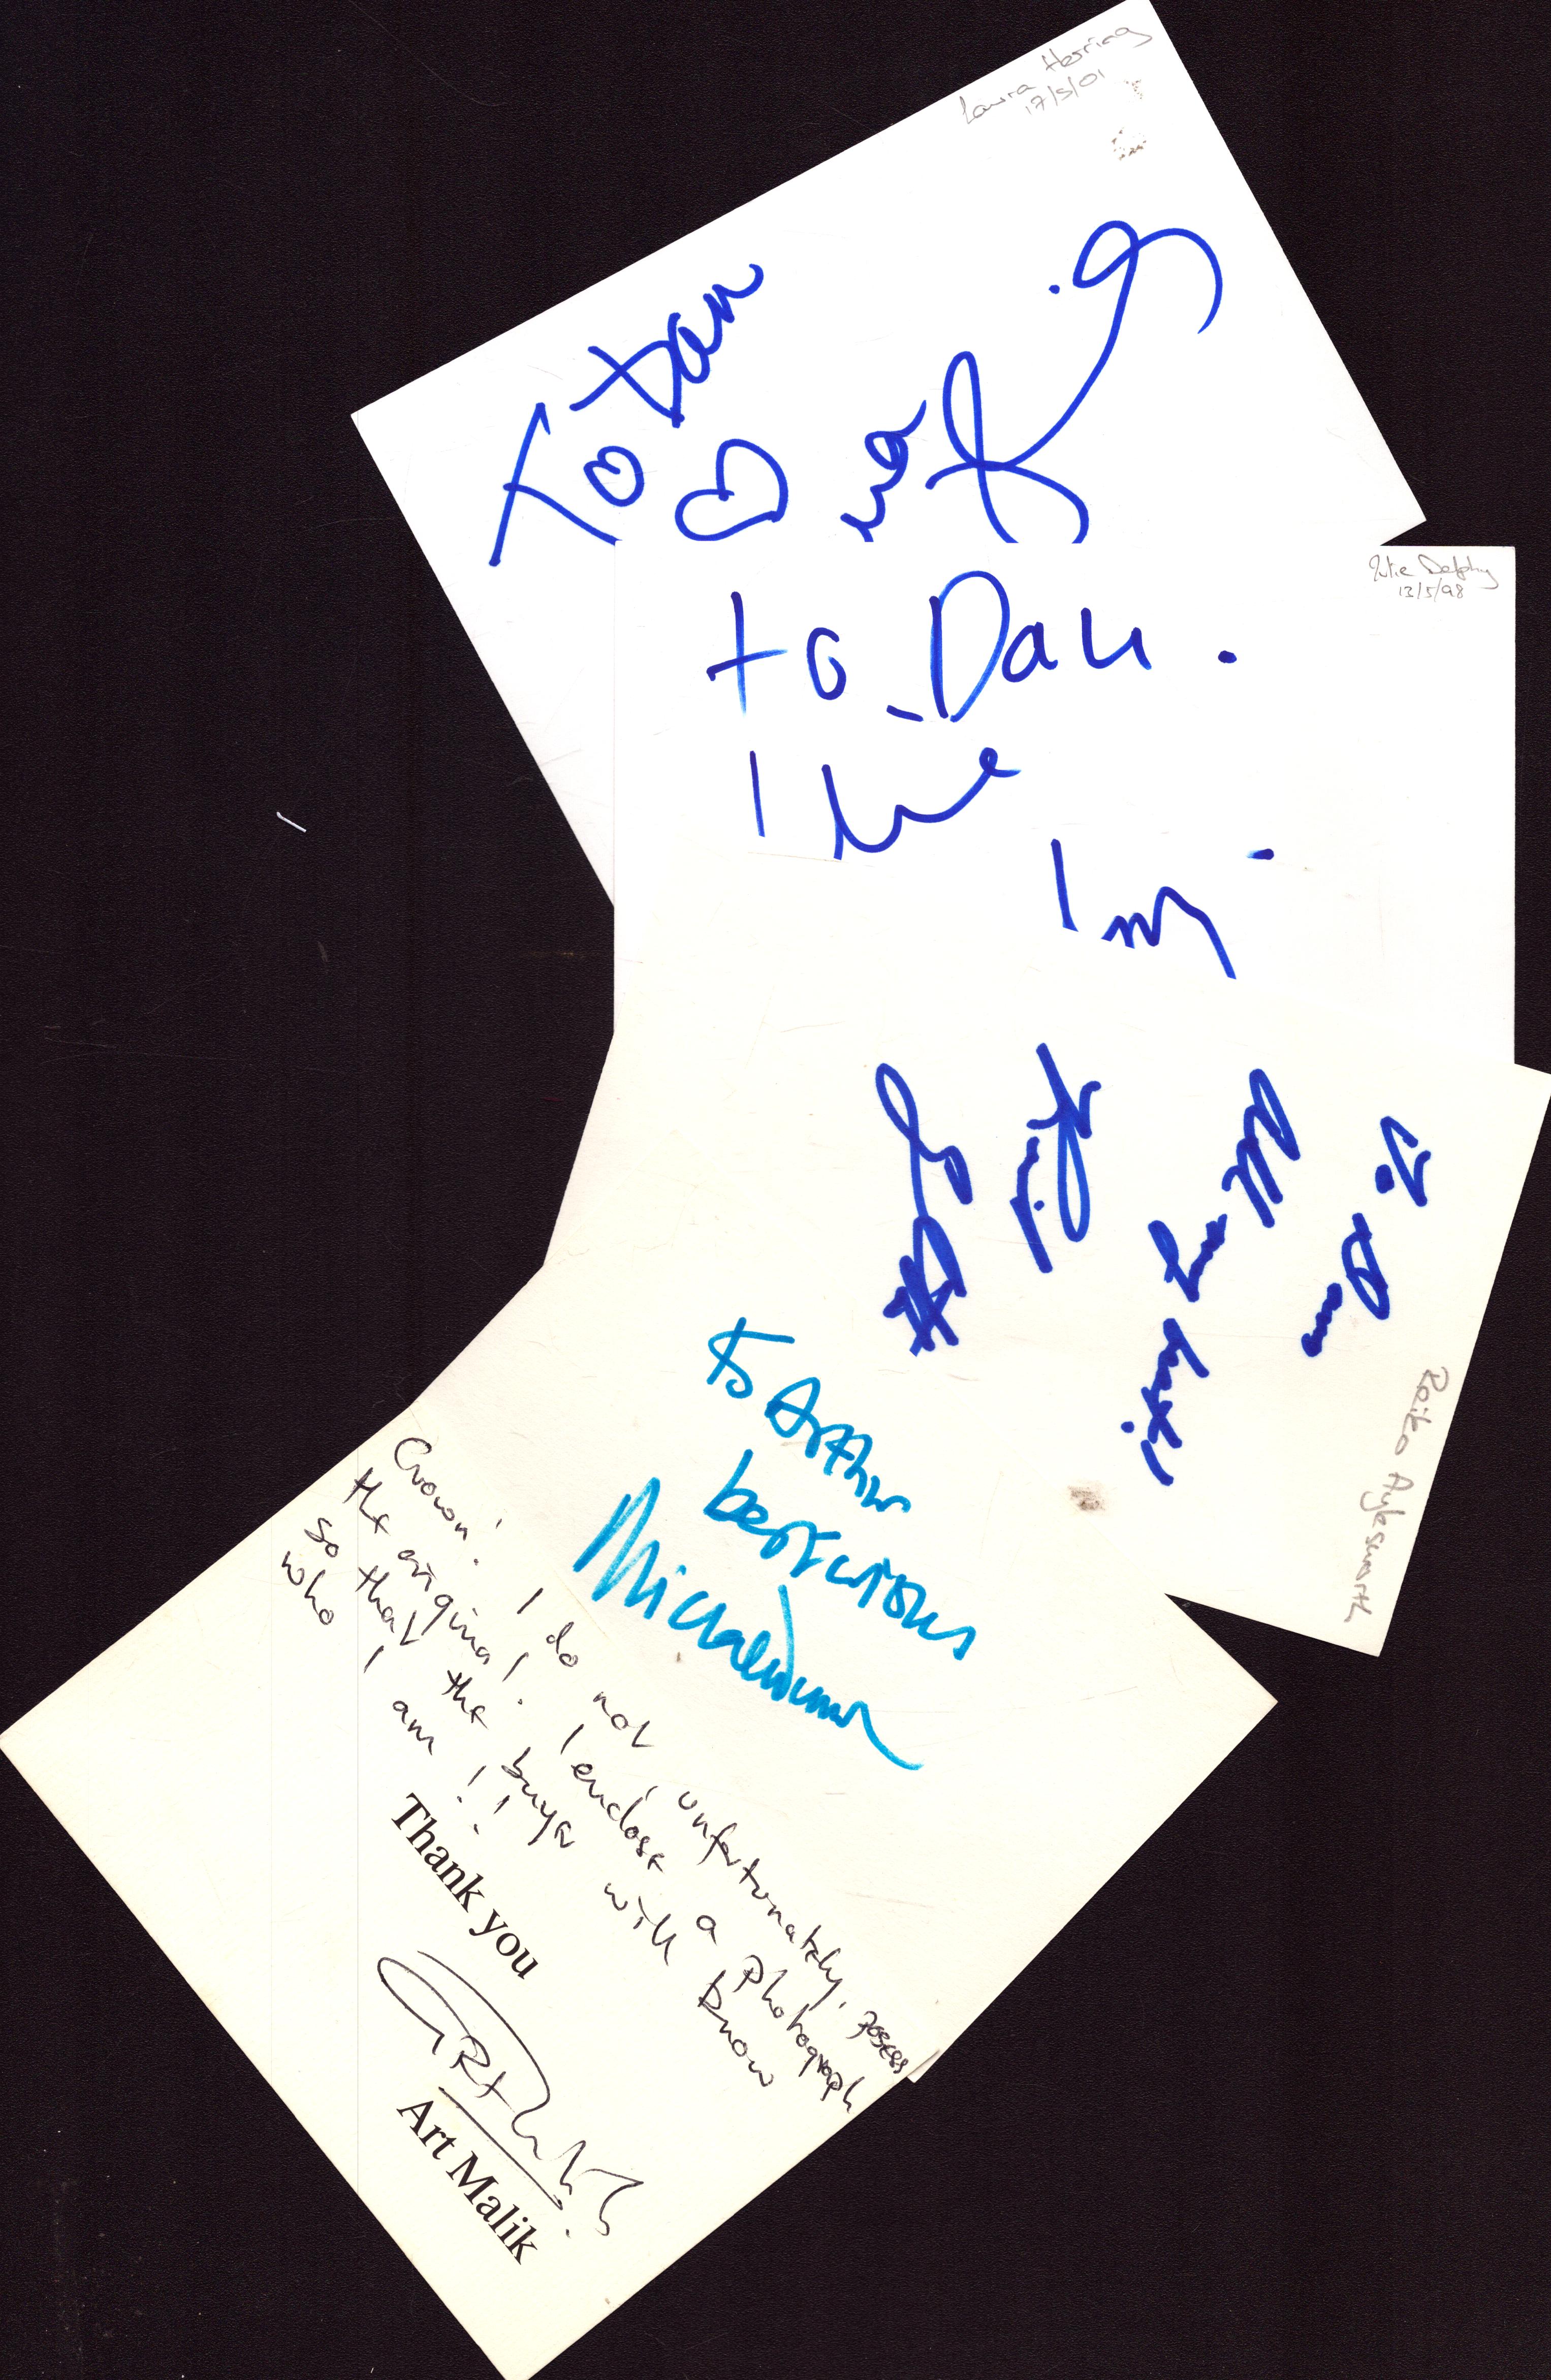 Laura Herring
17/5/01
To Dan
to Dan.
Julie Delphy
13/5/98
To Dan
Raiko Aylesworth
To Arthur
best wishes
Michael Winner
Crown! I do not, unfortunately, posess
the original. I enclose a photograph
so that the buyer will know
who I am!!
Thank you
Art Malik